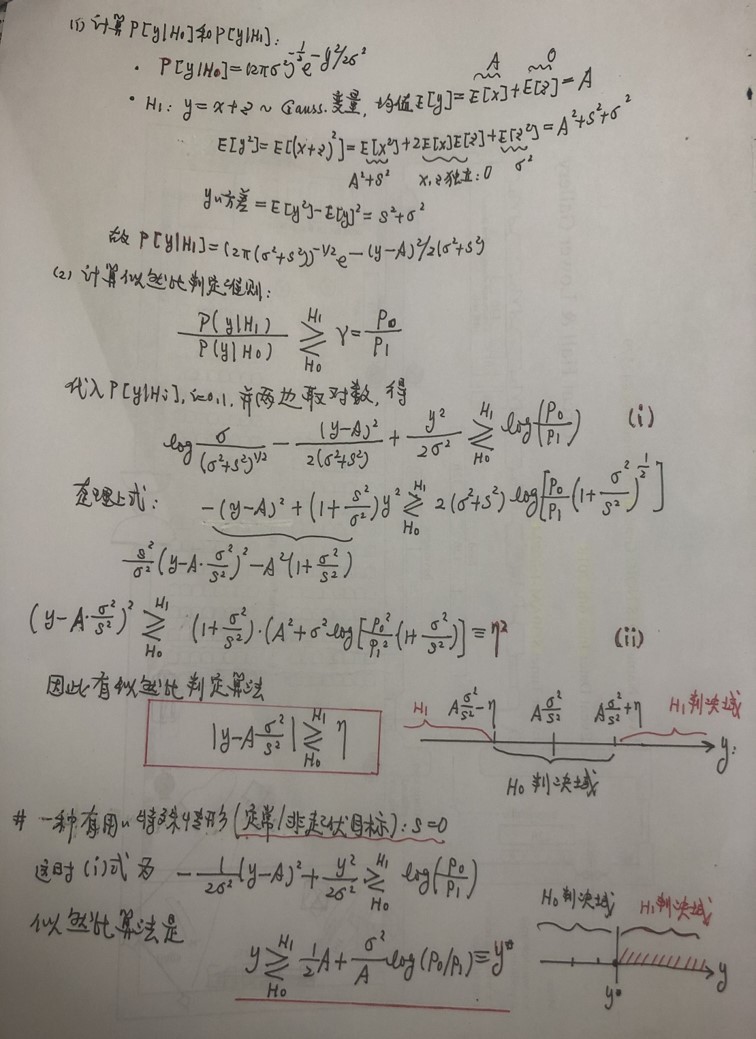 (1) 计算P[y|H₀]和P[y|H₁]:
· P[y|H₀]=(2πσ²)^{-1/2} e^{-y²/2σ²}
A 0
· H₁: y=x+z ~ Gauss.变量, 均值E[y]=E[x]+E[z]=A
E[y²]=E[(x+z)²]=E[x²]+2E[x]E[z]+E[z²]=A²+s²+σ²
A²+s² x,z独立:0 σ²
y的方差=E[y²]-E[y]²=s²+σ²
故 P[y|H₁]=(2π(σ²+s²))^{-1/2} e-(y-A)²/2(σ²+s²)
(2) 计算似然比判定准则:
P(y|H₁)/P(y|H₀) ≷^{H₁}_{H₀} γ=P₀/P₁
代入P[y|Hᵢ], i=0,1, 并两边取对数, 得
log σ/(σ²+s²)^{1/2} - (y-A)²/2(σ²+s²) + y²/2σ² ≷^{H₁}_{H₀} log(P₀/P₁) (i)
整理上式: -(y-A)²+(1+s²/σ²)y² ≷^{H₁}_{H₀} 2(σ²+s²)log[P₀/P₁(1+σ²/s²)^{1/2}]
s²/σ²(y-A·σ²/s²)²-A²(1+σ²/s²)
(y-A·σ²/s²)² ≷^{H₁}_{H₀} (1+σ²/s²)·(A²+σ²log[P₀²/P₁²(1+σ²/s²)]≡η² (ii)
因此有似然比判定算法
|y-Aσ²/s²| ≷^{H₁}_{H₀} η
H₁ Aσ²/s²-η Aσ²/s² Aσ²/s²+η H₁判决域
y.
H₀判决域
# 一种有用的特殊情形(定常/非起伏目标): s=0
这时(i)式为 -1/2σ²(y-A)²+y²/2σ² ≷^{H₁}_{H₀} log(P₀/P₁)
似然比算法是
y ≷^{H₁}_{H₀} 1/2A+σ²/A log(P₀/P₁)≡y*
H₀判决域 H₁判决域
y
y*